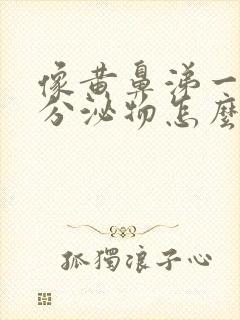 像黄鼻涕一
分泌物怎麼
孤獨浪子心